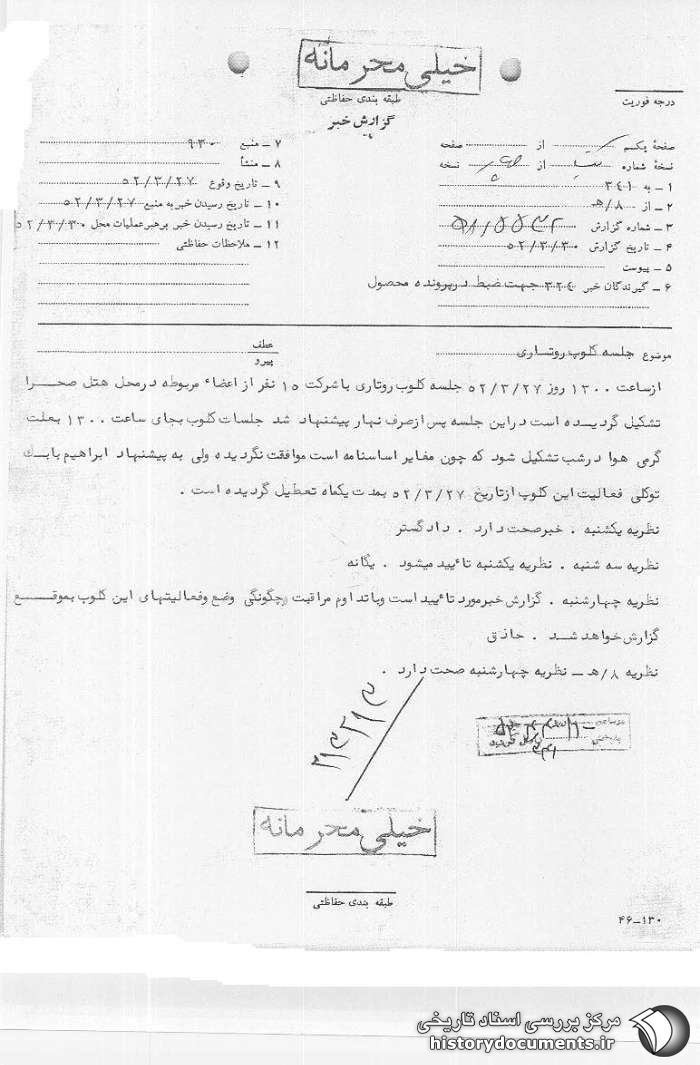 خیلی محرمانه
طبقه بندی حفاظتی
گزارش خبر
درجه فوریت
صفحه یکم از صفحه
نسخه شماره از نسخه
۱ ـ به ۳۴۱
۲ ـ از ۸/هـ
۳ ـ شماره گزارش
۴ ـ تاریخ گزارش ۵۲/۳/۳۰
۵ ـ پیوست
۶ ـ گیرندگان خبر ۳۲۴ جهت ضبط در پرونده محصول
۷ ـ منبع ۹۳۰
۸ ـ منشأ
۹ ـ تاریخ وقوع ۵۲/۳/۲۷
۱۰ ـ تاریخ رسیدن خبر به منبع ۵۲/۳/۲۷
۱۱ ـ تاریخ رسیدن خبر برهبر عملیات محل ۵۲/۳/۳۰
۱۲ ـ ملاحظات حفاظتی
موضوع جلسه کلوپ روتاری
عطف
پیرو
ازساعت ۱۳۰۰ روز ۵۲/۳/۲۷ جلسه کلوب روتاری با شرکت ۱۵ نفر از اعضاء مربوطه درمحل هتل صحرا
تشکیل گردیده است دراین جلسه پس ازصرف نهار پیشنهاد شد جلسات کلوب بجای ساعت ۱۳۰۰ بعلت
گرمی هوا درشب تشکیل شود که چون مغایر اساسنامه است موافقت نگردیده ولی به پیشنهاد ابراهیم بابك
توکلی فعالیت این کلوپ ازتاریخ ۵۲/۳/۲۷ بمدت یکماه تعطیل گردیده است .
نظریه یکشنبه . خبرصحت دارد . دادگستر
نظریه سه شنبه . نظریه یکشنبه تائید میشود . یگانه
نظریه چهارشنبه . گزارش خبرمورد تائید است وباتداوم مراقبت چگونگی وضع وفعالیتهای این کلوب بموقع
گزارش خواهد شد . حاذق
نظریه ۸/هـ ـ نظریه چهارشنبه صحت دارد .
خیلی محرمانه
طبقه بندی حفاظتی
۴۶-۱۳۰
مرکز بررسی اسناد تاریخی
historydocuments.ir